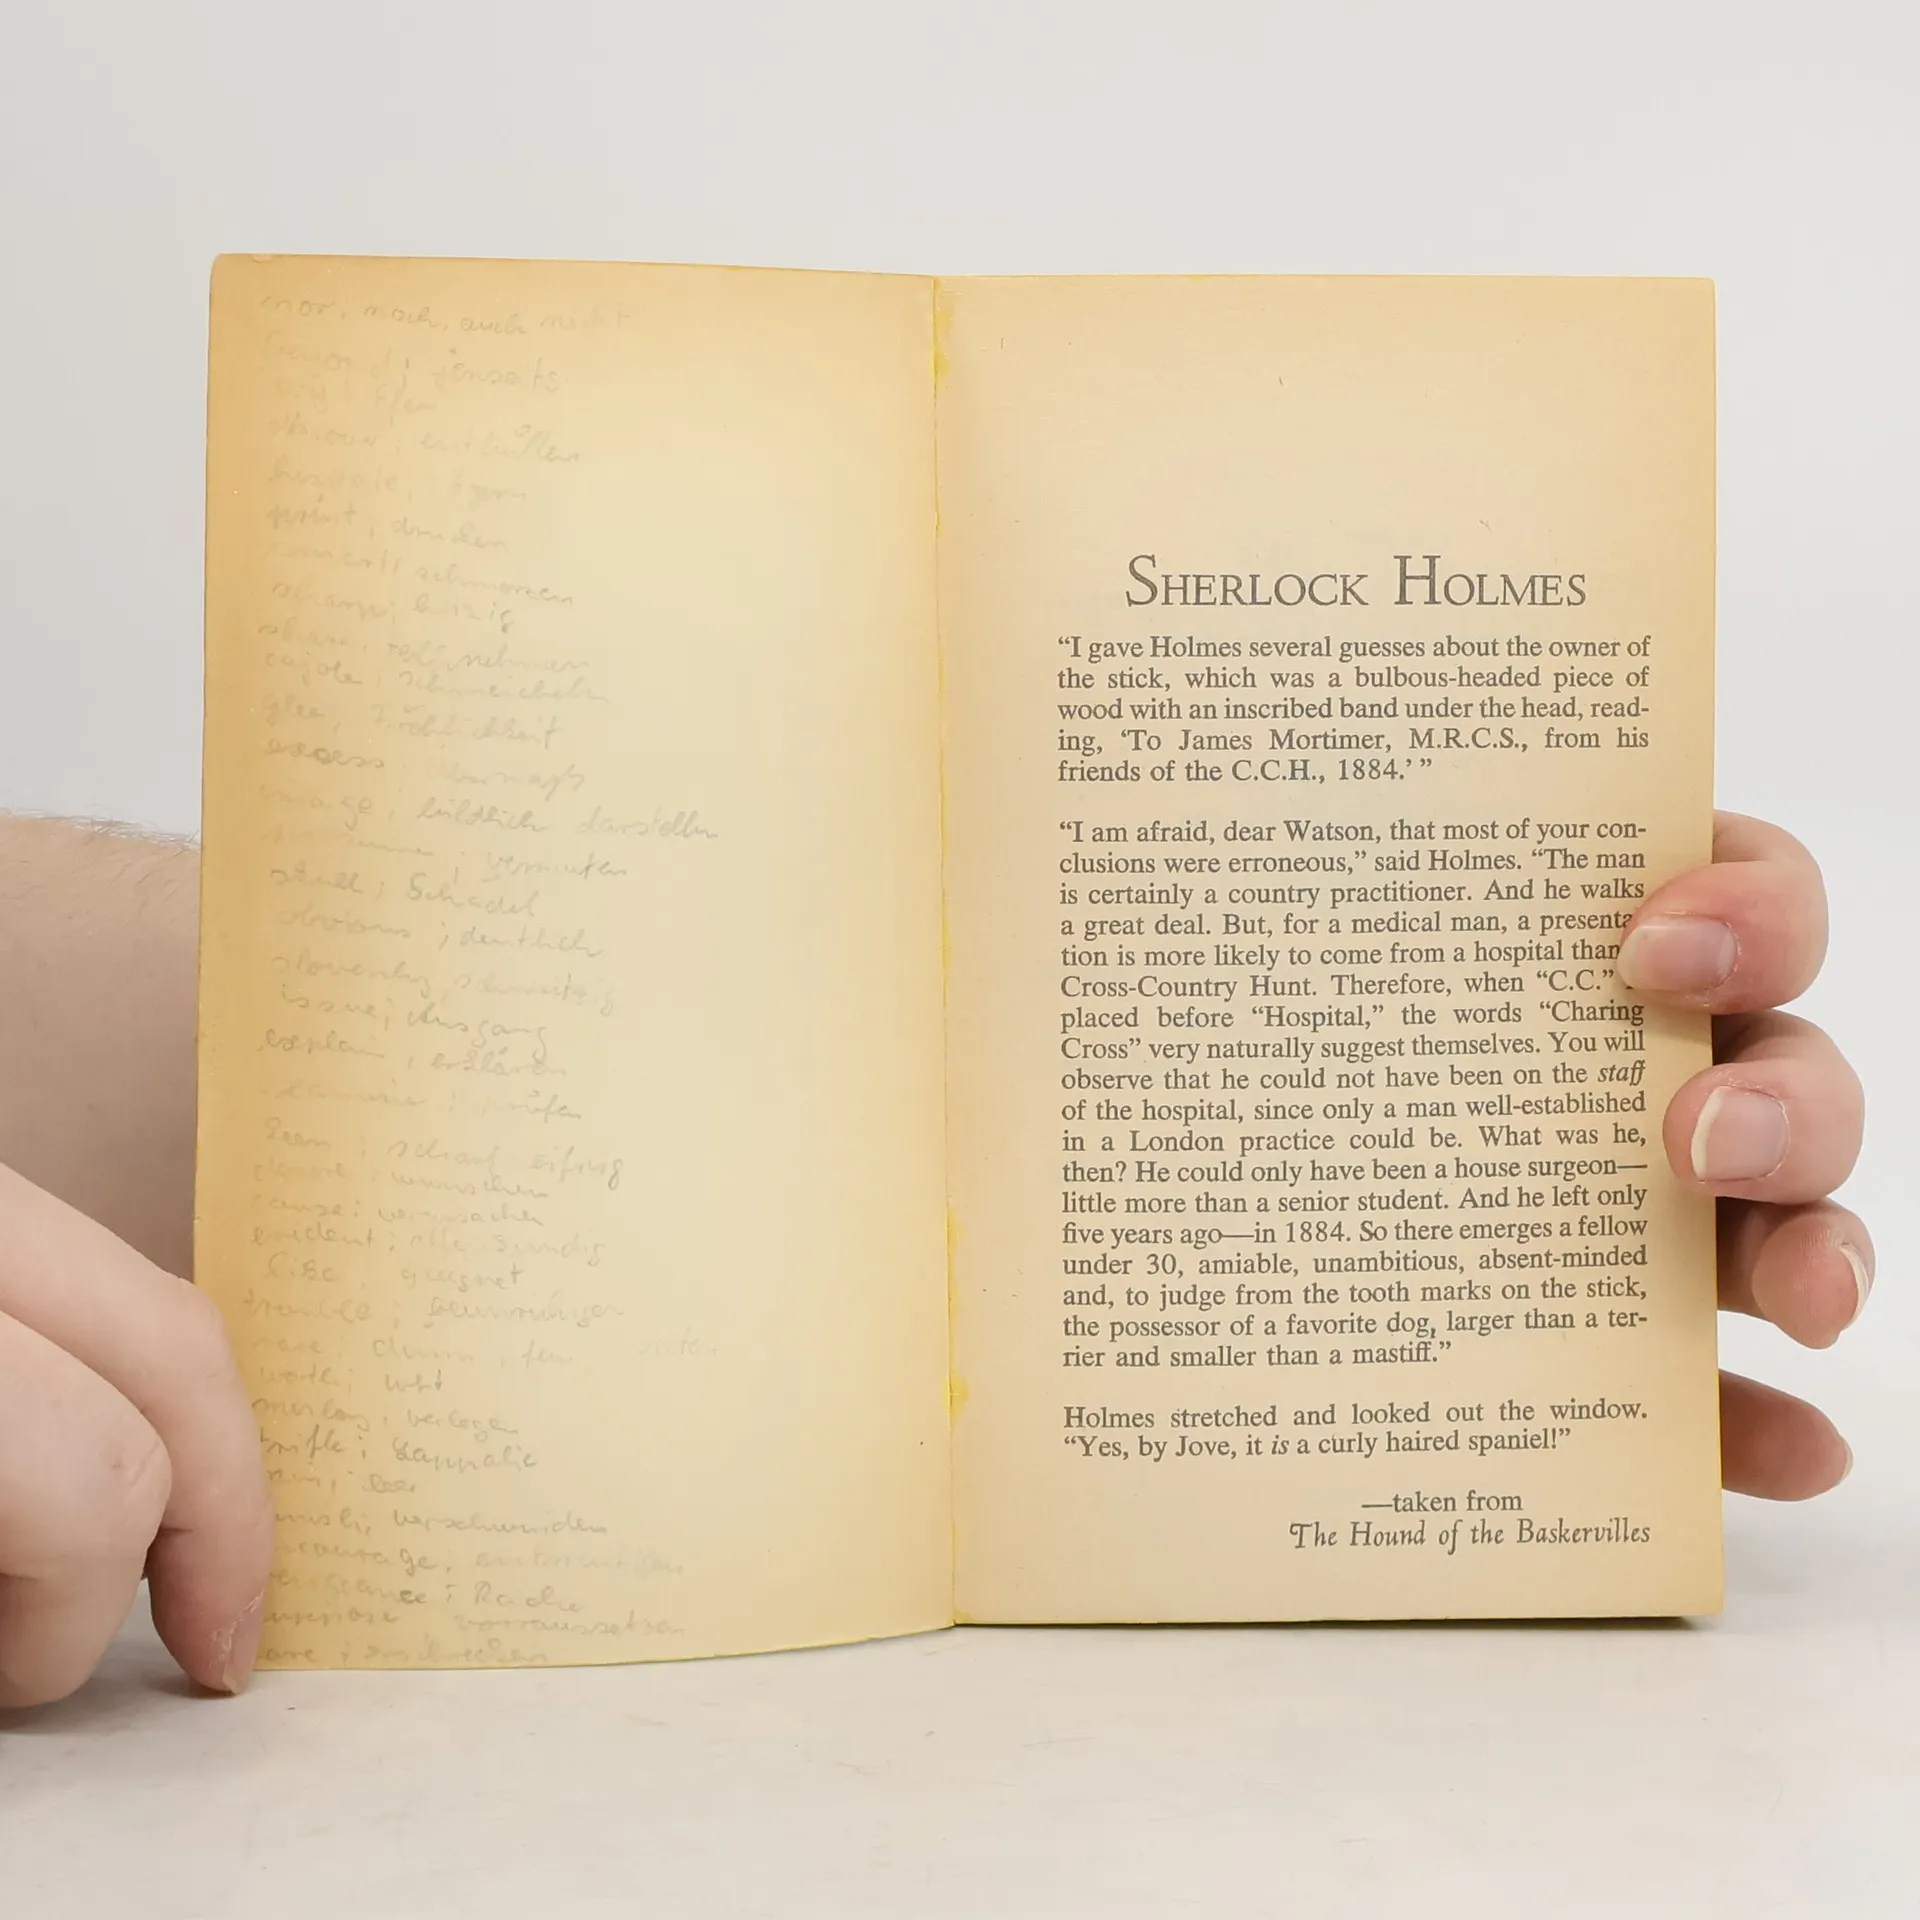 nor, noch, auch nicht
beyond; jenseits
print, drucken
schmerzen
sharp; hitzig
share, teilnehmen
cajole; schmeicheln
glee, Fröhlichkeit
excess; übermaß
image; bildlich darstellen
; vermuten
skull; Schädel
obvious; deutlich
slovenly, schmutzig
issue; Ausgang
explain, erklären
prüfen
keen; scharf eifrig
desire; wünschen
cause: verursachen
evident;
geeignet
trouble; beunruhigen
rare; dünn, fein selten
worth; wert
verlegen
trifle; Lappalie
verschwinden
vengeance; Rache
vorraussetzen
erschrecken
SHERLOCK HOLMES
“I gave Holmes several guesses about the owner of
the stick, which was a bulbous-headed piece of
wood with an inscribed band under the head, read-
ing, ‘To James Mortimer, M.R.C.S., from his
friends of the C.C.H., 1884.’ ”
“I am afraid, dear Watson, that most of your con-
clusions were erroneous,” said Holmes. “The man
is certainly a country practitioner. And he walks
a great deal. But, for a medical man, a presenta
tion is more likely to come from a hospital than
Cross-Country Hunt. Therefore, when “C.C.”
placed before “Hospital,” the words “Charing
Cross” very naturally suggest themselves. You will
observe that he could not have been on the staff
of the hospital, since only a man well-established
in a London practice could be. What was he,
then? He could only have been a house surgeon—
little more than a senior student. And he left only
five years ago—in 1884. So there emerges a fellow
under 30, amiable, unambitious, absent-minded
and, to judge from the tooth marks on the stick,
the possessor of a favorite dog, larger than a ter-
rier and smaller than a mastiff.”
Holmes stretched and looked out the window.
“Yes, by Jove, it is a curly haired spaniel!”
—taken from
The Hound of the Baskervilles